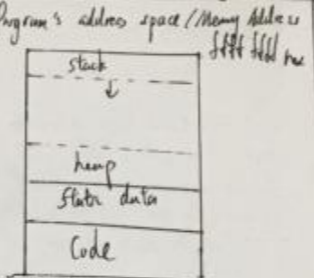 Program's address space/Memory Address
ffff ffff hex
stack
↓
heap
static data
Code